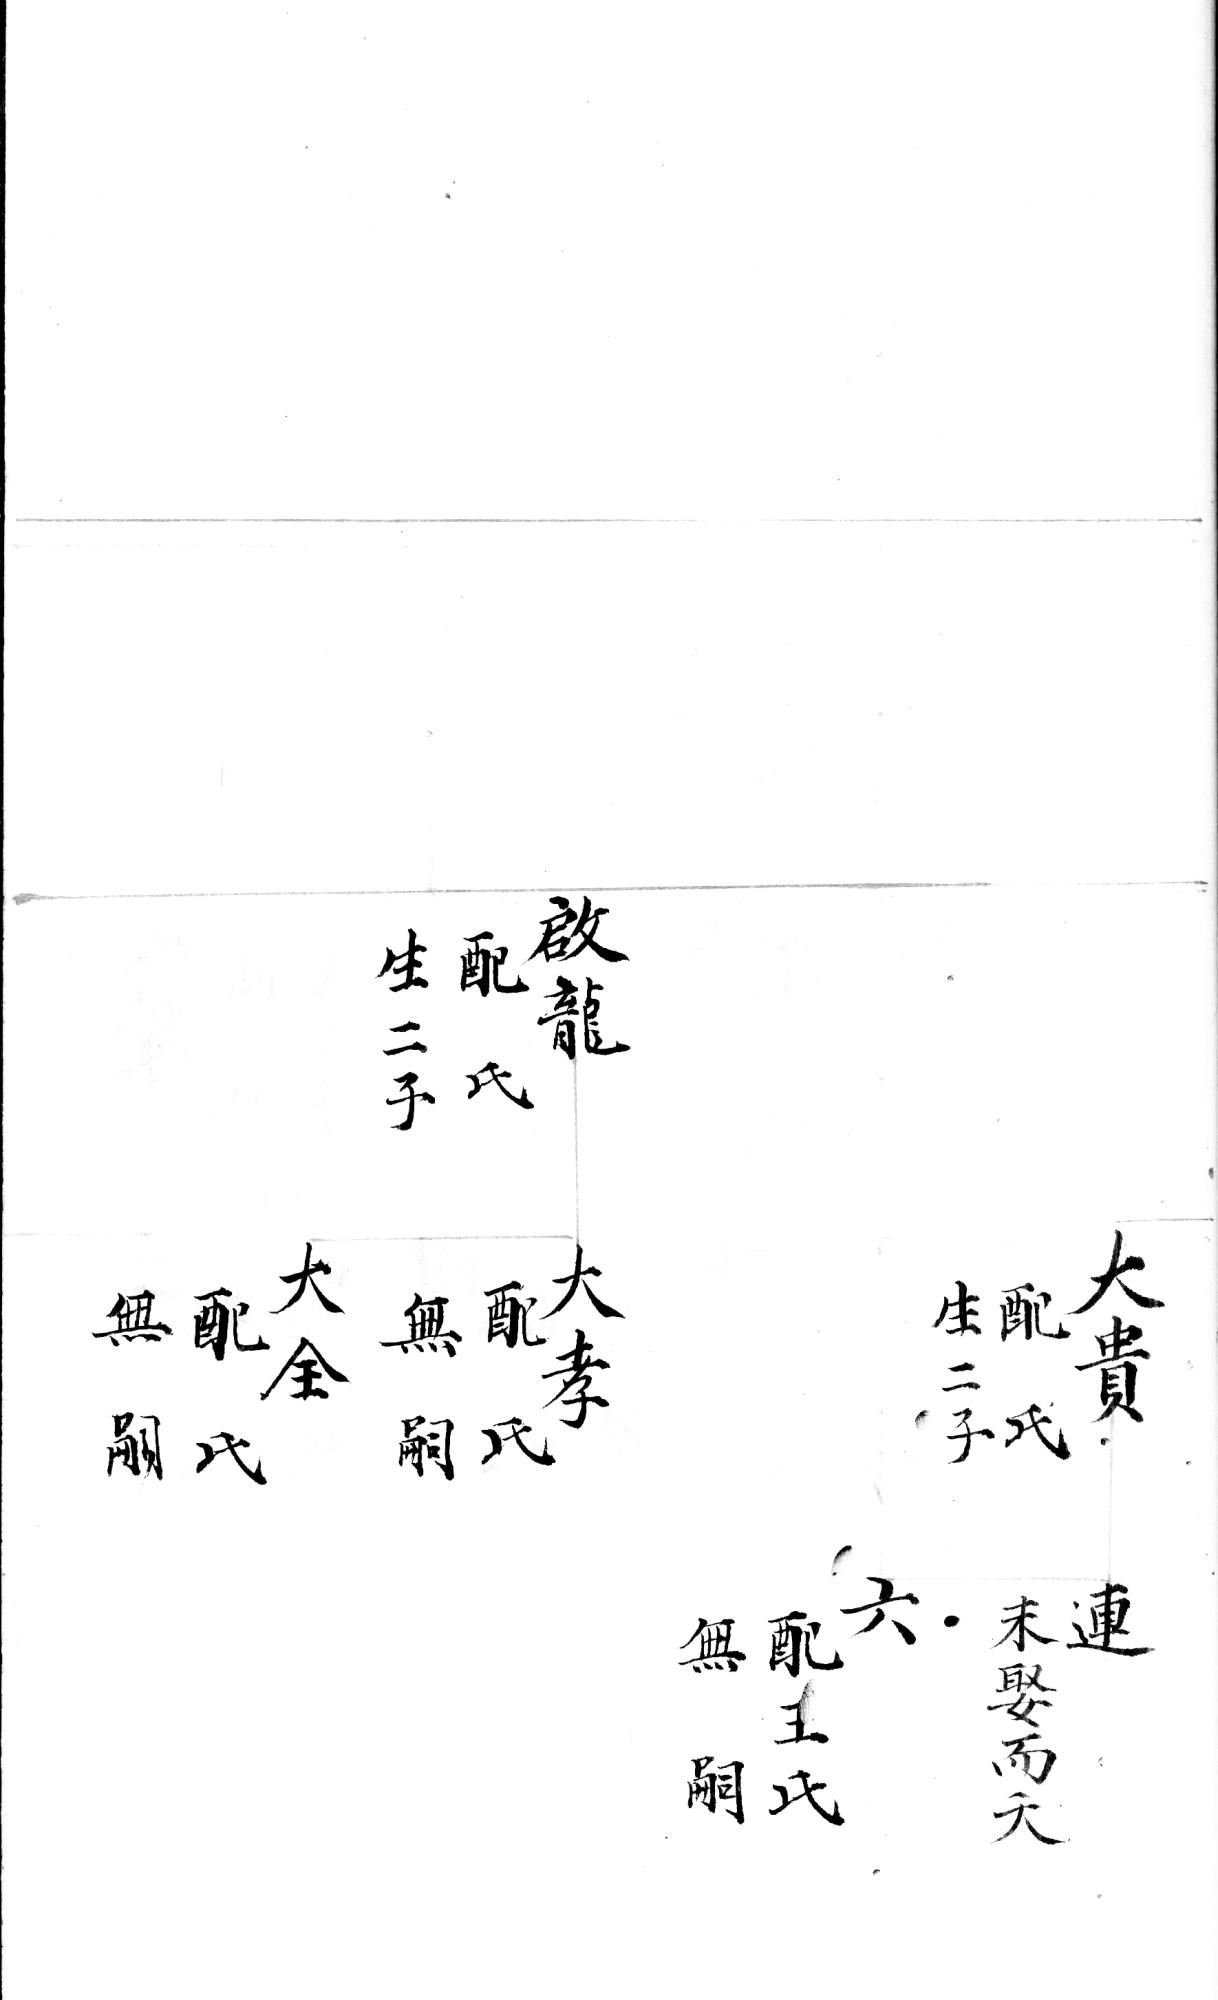 啟龍
配　氏
生二子
大貴
配　氏
生二子
大孝
配　氏
無嗣
大全
配　氏
無嗣
連
未娶而夭
六
配王氏
無嗣